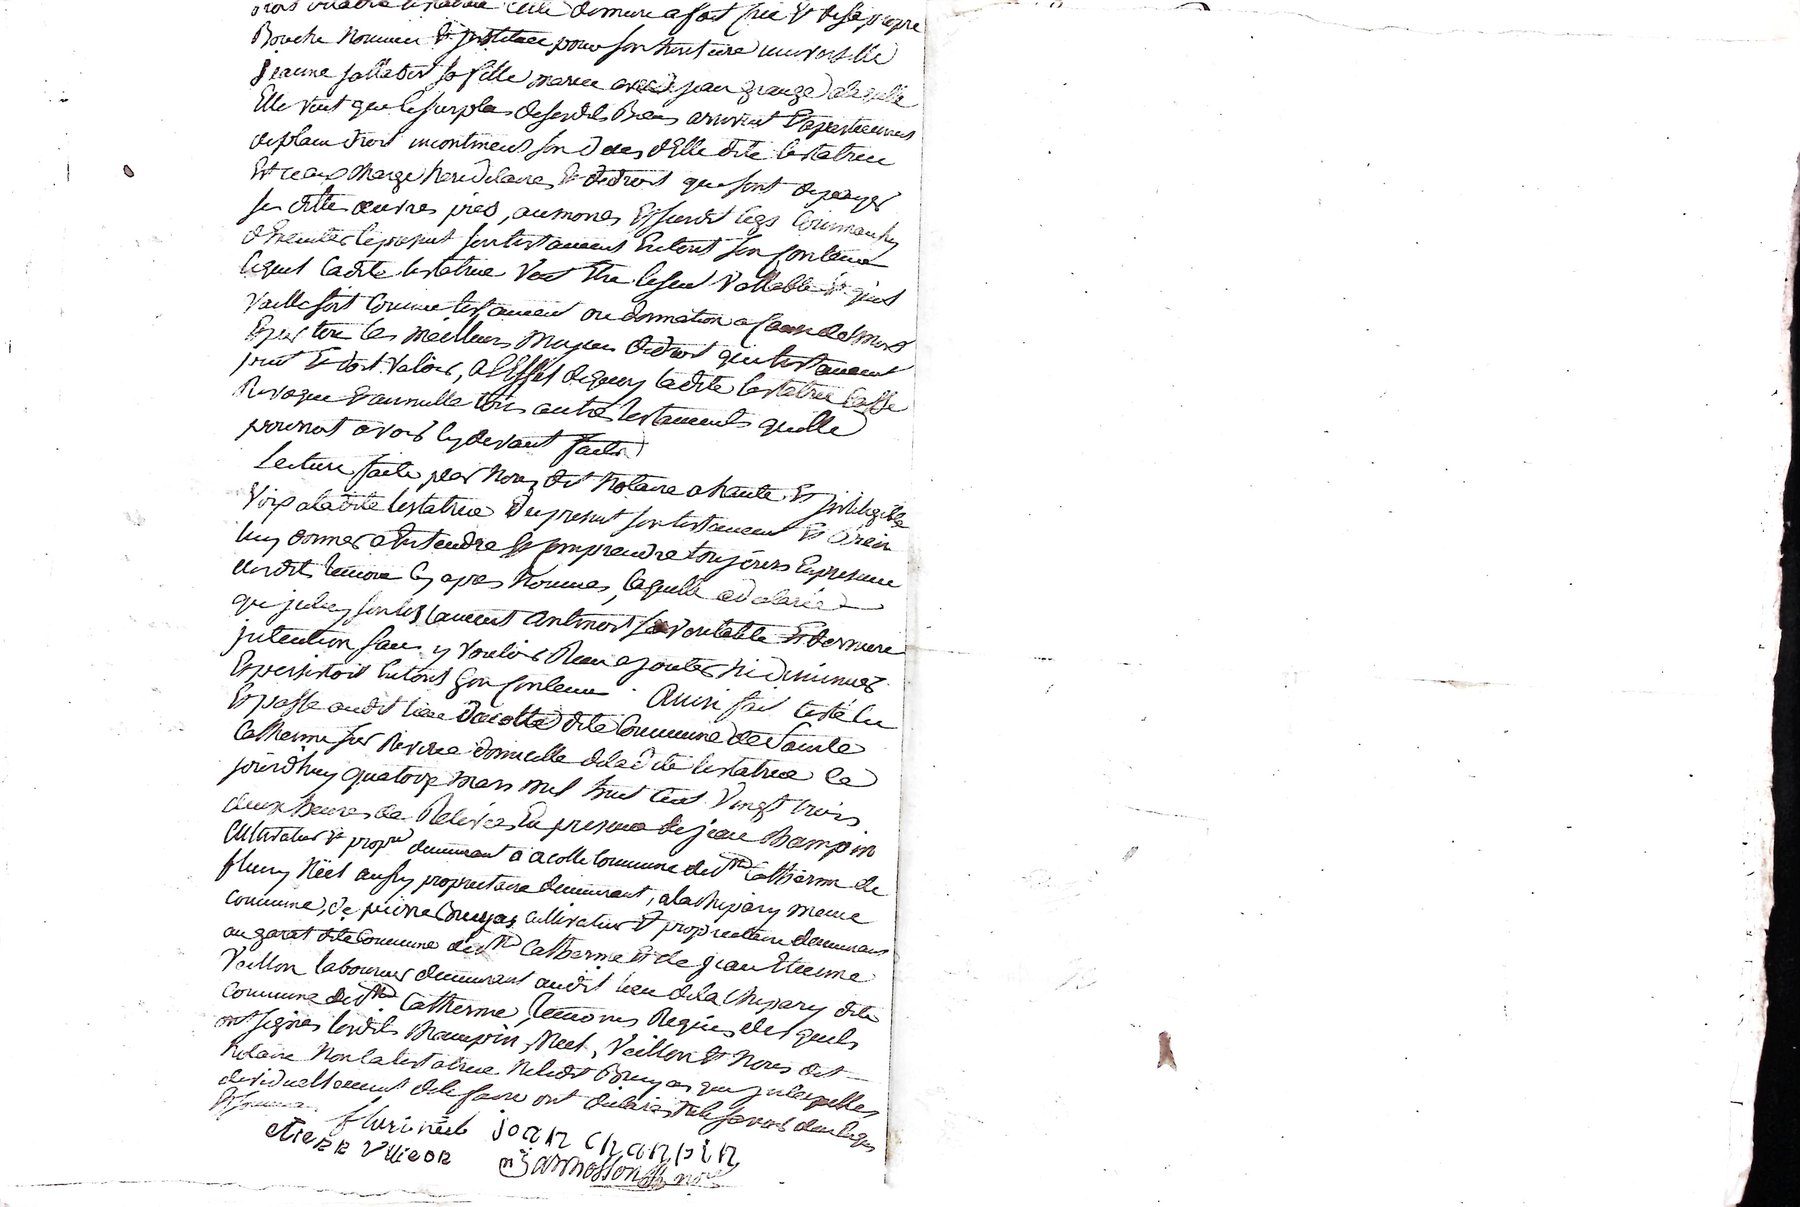 testatrice elle dememe a fait cree Et de sa propre
Bouche Nommée Et Institue pour son heritiere universelle
Jeanne sa fille mariee avec jean grange alaquelle
Elle veut que le surplus de sesdits Biens arrivent Et apartiennent
de plain droit incontinent son deces d'Elle dite testatrice
Et ceaux charge hereditaires Et de droit que sont de payer
ses dittes œuvres pies, aumones Et susdit legs
d'Executer le present son testament En tout son contenu
lequel ladite testatrice veut Etre le seul Vallable Et quil
Vaille soit comme testament ou donnation a cause de mort
Et par tous les meilleurs moyens de droit que testament
peut Et doit Valoir, a l'Effet de quoy ladite testatrice Casse
Revoque Et annulle tous autres testaments quelle
pourroit avoir cy devant faits
Lecture faite par Nous dit Notaire a haute Et Intelligible
Voix a ladite testatrice du present son testament Et a icin
luy donner a Entendre Et comprendre toujours En presence
desdits temoins cy apres Nommes, laquelle a declaré
que jceluy son testament contenoit sa veritable Et derniere
jntention sans y vouloir Rien ajouter ni diminuer
Et persistoit En tout son contenu. Ainsi fait testé lu
Et passe audit lieu Dacolle dite Commune de Sainte
Catherine sur Riviere domicille de ladite testatrice ce
jourdhuy quatorze mars mil huit cent vingt trois
deux heures de Relevée En presence de jean Champin
Cultivateur et propre demeurant a acolle Commune de Ste Catherine de
fleury Néel aussy proprietaire demeurant, a la chipary meme
commune, de pierre Bruyas cultivateur Et proprietaire demeurant
au garat dite Commune de Ste Catherine Et de jean Etienne
Vaillon laboureur demeurant audit lieu de la chipary dite
commune de Ste Catherine, temoins Requis desquels
ont signes lesdits Champin, Néel, Vaillon Et Nous dit
Notaire Non la testatrice Ni ledit Bruyas que jnterpelles
dividuellement de le faire ont declaré Ne le savoir de ce Enquis
Et sommes
fluri néel joan chanpin
etienne vllieon